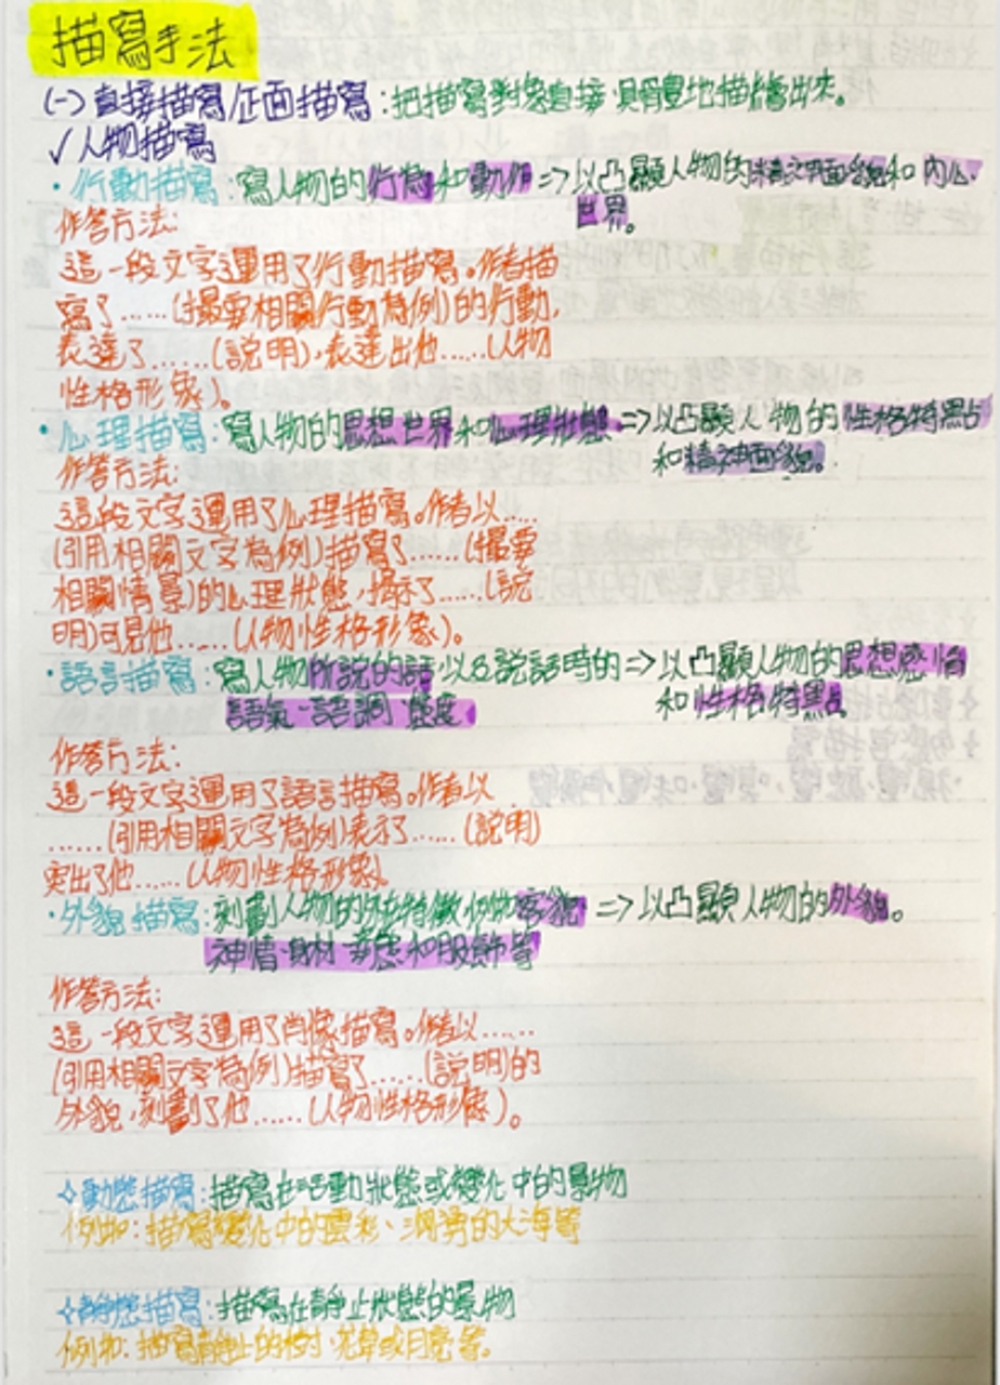 描寫手法
(一) 直接描寫/正面描寫：把描寫對象直接、具體地描繪出來。
✓人物描寫
·行動描寫：寫人物的行為和動作=>以凸顯人物的精神面貌和內心
世界。
作答方法：
這一段文字運用了行動描寫。作者描
寫了……(撮要相關行動為例)的行動，
表達了……(說明)，表達出他……(人物
性格形象)。
·心理描寫：寫人物的思想世界和心理狀態=>以凸顯人物的性格特點
和精神面貌。
作答方法：
這段文字運用了心理描寫。作者以……
(引用相關文字為例)描寫了……(撮要
相關情景)的心理狀態，揭示了……(說
明)可見他……(人物性格形象)。
·語言描寫：寫人物所說的話以及說話時的=>以凸顯人物的思想感情
語氣、語調、態度 和性格特點
作答方法：
這一段文字運用了語言描寫。作者以
……(引用相關文字為例)表示了……(說明)
突出了他……(人物性格形象)。
·外貌描寫：刻劃人物的外形特徵，例如容貌、=>以凸顯人物的外貌。
神情、身材、姿態和服飾等
作答方法：
這一段文字運用了肖像描寫。作者以……
(引用相關文字為例)描寫了……(說明)的
外貌，刻劃了他……(人物性格形象)。
✧動態描寫：描寫在活動狀態或變化中的景物
例如：描寫變化中的雲彩、洶湧的大海等
✧靜態描寫：描寫在靜止狀態的景物
例如：描寫靜止的樹、花草或月亮等。